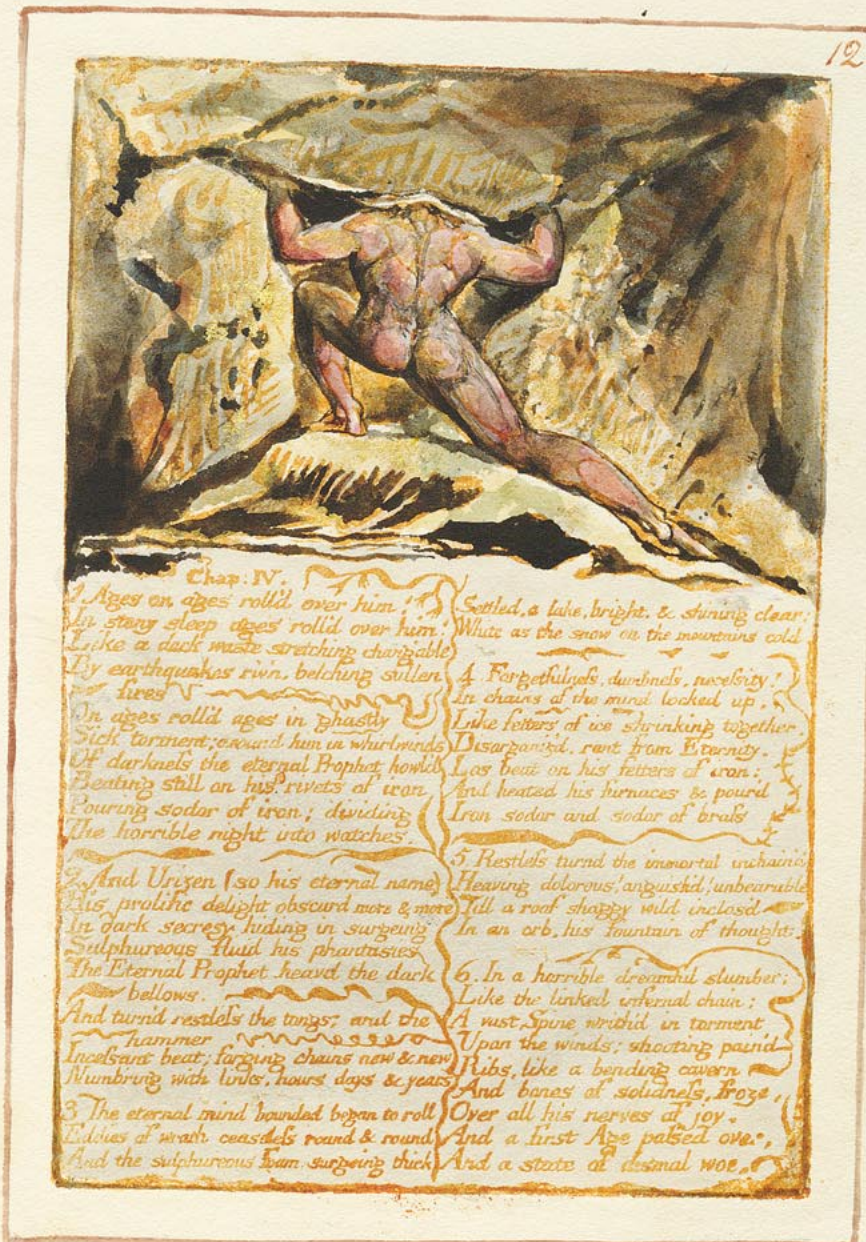 12
Chap: IV.
1. Ages on ages roll'd over him!
In stony sleep ages roll'd over him!
Like a dark waste stretching chang'able
By earthquakes riv'n, belching sullen
fires
On ages roll'd ages in ghastly
Sick torment; around him in whirlwinds
Of darkness the eternal Prophet howl'd
Beating still on his rivets of iron
Pouring sodor of iron; dividing
The horrible night into watches.
2. And Urizen (so his eternal name)
His prolific delight obscurd more & more
In dark secresy hiding in surgeing
Sulphureous fluid his phantasies.
The Eternal Prophet heavd the dark
bellows.
And turn'd restless the tongs; and the
hammer
Incessant beat; forging chains new & new
Numb'ring with links, hours days & years
3 The eternal mind bounded began to roll
Eddies of wrath ceaseless round & round
And the sulphureous foam surgeing thick
Settled, a lake, bright, & shining clear:
White as the snow on the mountains cold
4 Forgetfulness, dumbness, necessity!
In chains of the mind locked up,
Like fetters of ice shrinking together.
Disorganiz'd, rent from Eternity.
Los beat on his fetters of iron:
And heated his furnaces & pour'd
Iron sodor and sodor of brass
5. Restless turnd the immortal inchain'd
Heaving dolorous! anguish'd! unbearable
Till a roof shaggy wild inclos'd
In an orb, his fountain of thought:
6. In a horrible dreamful slumber;
Like the linked infernal chain;
A vast Spine writh'd in torment
Upon the winds; shooting pain'd
Ribs, like a bending cavern
And bones of solidness, froze,
Over all his nerves of joy.
And a first Age passed over,
And a state of dismal woe.